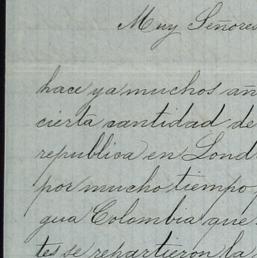 Muy Señores
hace ya muchos añ
cierta cantidad de
republica en Lond
por mucho tiempo,
gua Colombia que
tes se repartieron la